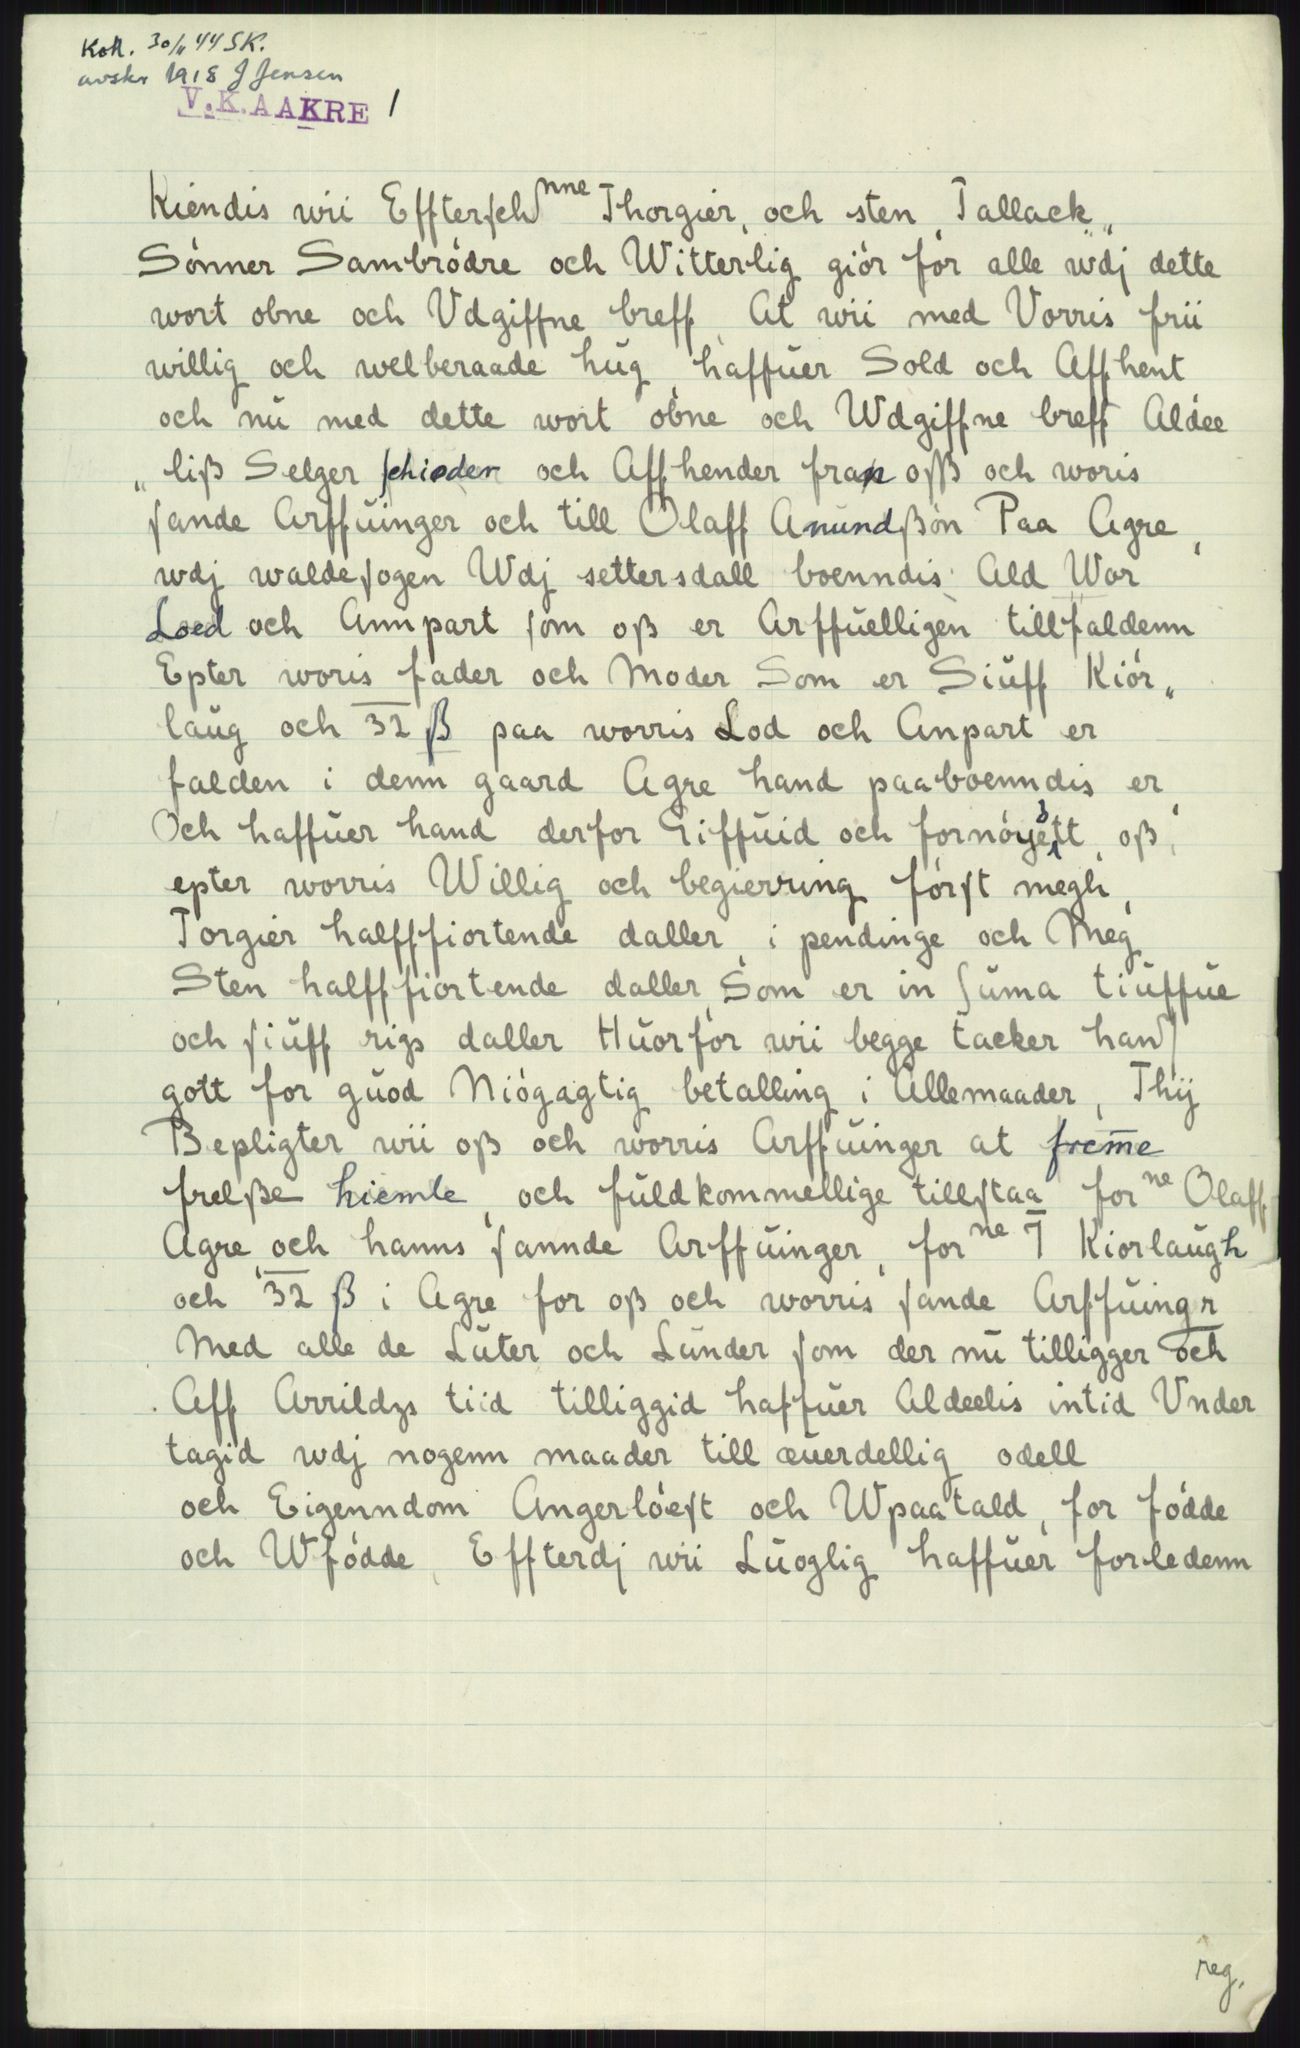 Koll. 30/11 44 SK.
avskr 1918 J Jensen
V.K.AAKRE 1
Kiendis wii Effterschnne Thorgier, och sten, Tallack„
Sønner Sambrødre och Witterlig giór for alle wdj dette
wort obne och Vdgiffne breff, At wii med Vorris frii
willig och welberaade hŭg, haffŭer Sold och Affhent
och nŭ med dette wort obne och Wdgiffne breff Aldee
„liß Selger schieder och Affhender fran oſß och woris
ſande Arffŭinger och till Olaff Anŭndßón Paa Agre,
wdj waldeſogen Wdj settersdall boenndis Ald Wor
Loed och Annpart ſom oß er Arffŭelligen tillfaldenn
Epter woris fader och Moder Som er Siŭff Kiór„
laŭg och 32 ß paa worris Lod och Anpart er
falden i denn gaard Agre hand paaboenndis er,
Och haffŭer hand derfor Giffŭid och fornóyett, oß,
epter worris Willig och begierring fórſt megh,
Torgier halfffiortende daller, i pendinge och Meg
Sten halfffiortende daller, Som er in ſŭma tiŭffŭe
och ſiŭff rigs daller Hŭorfor wii begge tacker hand
gott for gŭod Niógagtig betalling i Allemaader, Thij
Bepligter wii oß och worris Arffŭinger at freme
frelße hiemle, och fŭldkommellige tillſtaa forne Olaff
Agre, och hanns ſannde Arffŭinger, forne 7 Kiorlaŭgh
och 32 ß i Agre for oß och worris ſande Arffŭingr
Med alle de Lŭter och Lŭnder ſom der nŭ tilligger och
Aff Arrildzs tiid tilliggid haffŭer Aldeelis intid Vnder
tagid wdj nogenn maader till æŭerdellig odell
och Eigenndom Angerlóeſt och Wpaatald, for fódde
och Wfódde, Effterdj wii Lŭoglig haffŭer forledenn
reg.